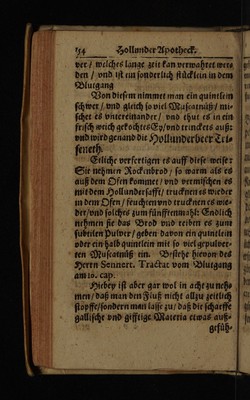 154 Hollunder Apotheck.
ver / welches lange zeit kan verwahret wer-
den / und ist ein sonderlich stücklein in dem
Blutgang
Von diesem nimmet man ein quintlein
schwer / und gleich so viel Muscatnüß / mi-
schet es untereinander / und thut es in ein
frisch weich gekochtes Ey / und trincket es auß:
und wird genandt der Hollunderbeer Tri-
seneth.
Etliche verfertigen es auff diese weise:
Sie nehmen Rockenbrod / so warm als es
auß dem Ofen kommet / und vermischen es
mit dem Hollundersafft / trucknen es wieder
in dem Ofen / feuchten und trucknen es wie-
der / und solches zum fünfftenmahl: Endlich
nehmen sie das Brod und reiben es zum
subtilen Pulver / geben davon ein quintlein
oder ein halb quintlein mit so viel gepulver-
ten Muscatnüß ein. Besiehe hievon des
Herrn Sennert. Tractat vom Blutgang
am 10. cap.
Hiebey ist aber gar wol in acht zu neh-
men / daß man den Fluß nicht allzu zeitlich
stopffe / sondern man lasse zu / daß die scharffe
gallische und gifftige Materia etwas auß-
geführ-